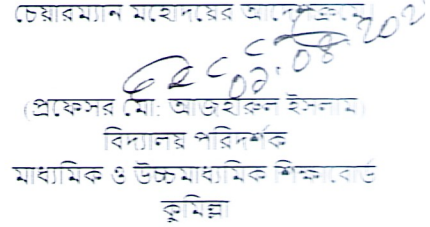 চেয়ারম্যান মহোদয়ের আদেশক্রমে
(প্রফেসর মো: আজহারুল ইসলাম)
বিদ্যালয় পরিদর্শক
মাধ্যমিক ও উচ্চমাধ্যমিক শিক্ষাবোর্ড
কুমিল্লা